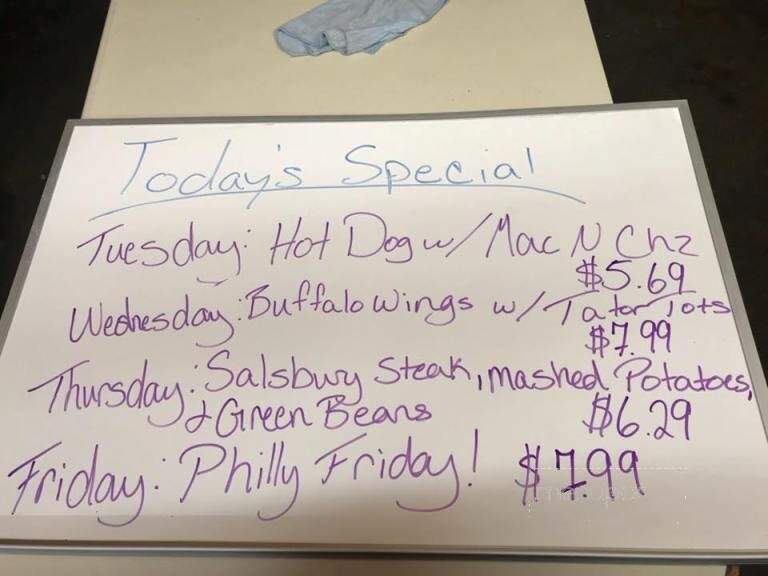 Today's Special
Tuesday: Hot Dog w/ Mac N Chz
$5.69
Wednesday: Buffalo Wings w/ Tator Tots
$7.99
Thursday: Salsbury Steak, mashed Potatoes,
& Green Beans $6.29
Friday: Philly Friday! $7.99